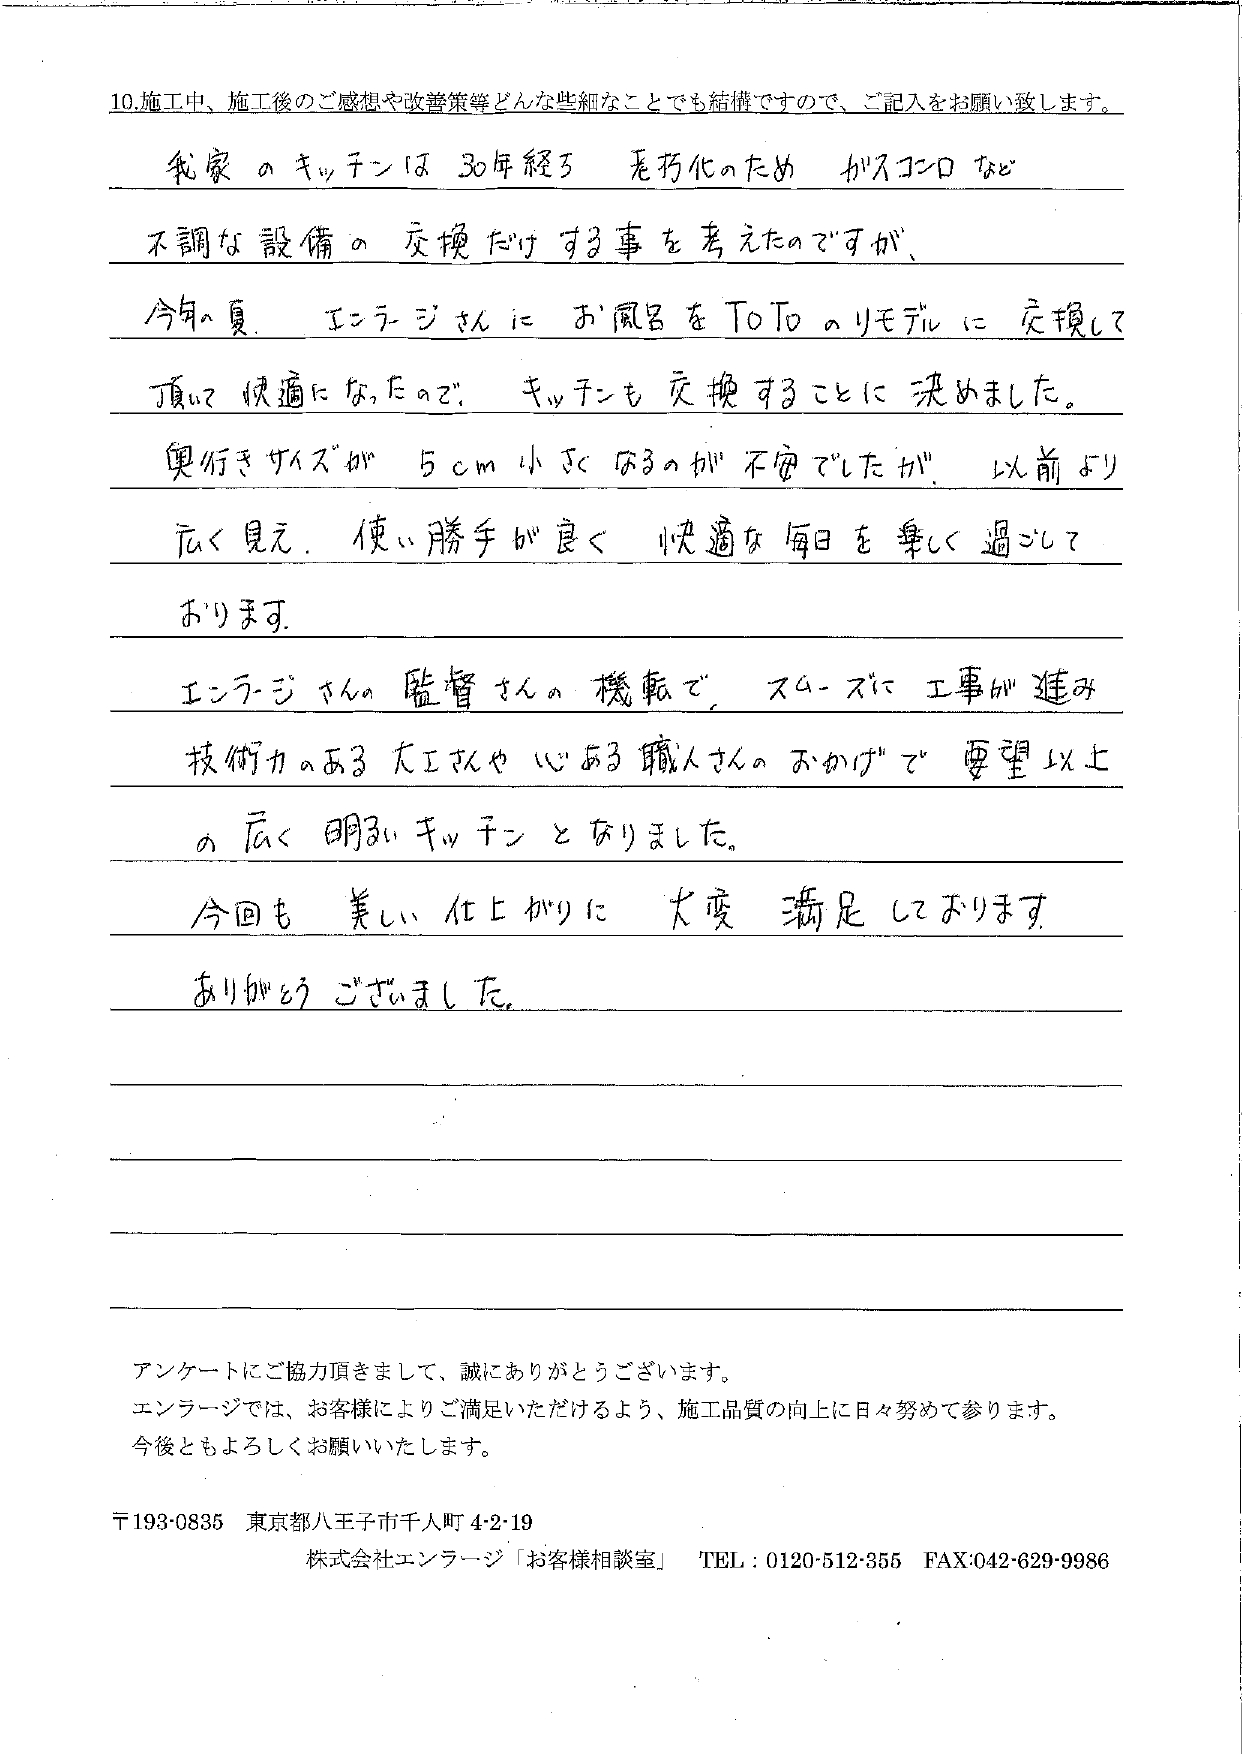 10.施工中、施工後のご感想や改善策等どんな些細なことでも結構ですので、ご記入をお願い致します。
我家のキッチンは 30年経ち 老朽化のため ガスコンロなど
不調な設備の交換だけする事を考えたのですが、
今年の夏、エンラージさんにお風呂をTOTOのリモデルに交換して
頂いて快適になったので、キッチンも交換することに決めました。
奥行きサイズが 5cm小さくなるのが不安でしたが、以前より
広く見え、使い勝手が良く 快適な毎日を楽しく過ごして
おります。
エンラージさんの監督さんの機転で、スムーズに工事が進み
技術力のある大工さんや心ある職人さんのおかげで要望以上
の広く明るいキッチンとなりました。
今回も 美しい仕上がりに 大変 満足しております。
ありがとうございました。
アンケートにご協力頂きまして、誠にありがとうございます。
エンラージでは、お客様によりご満足いただけるよう、施工品質の向上に日々努めて参ります。
今後ともよろしくお願いいたします。
〒193-0835 東京都八王子市千人町 4-2-19
株式会社エンラージ「お客様相談室」 TEL：0120-512-355 FAX:042-629-9986